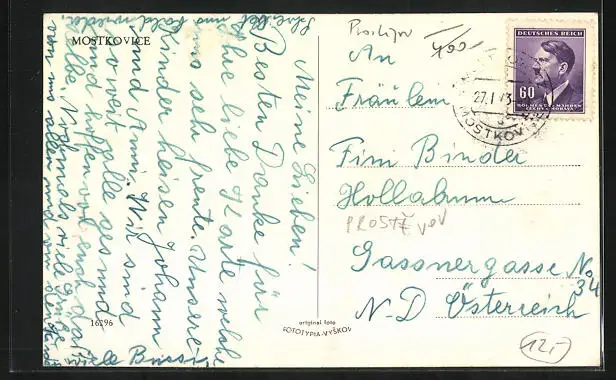 MOSTKOVICE
Meine Lieben!
Besten Danke für
ihre liebe Karte welche
uns sehr freute. Unsere
Kinder heisen Johann
und Anni. Wir sind
soweit alle gesund
und hoffen von euch das
selbe. Nochmals viele Grüße
von uns allen und
viele Bussi
Schreibet uns bald wieder
16296
original foto
FOTOTYPIA-VYŠKOV
Prostějov
400
An
Fräulein
Fini Binder
Hollabrunn
PROSTĚJOV
Gassnergasse No
34
N-D Österreich
12,-
DEUTSCHES REICH
60
BÖHMEN u. MÄHREN
ČECHY a MORAVA
27.I.43
MOSTKOV